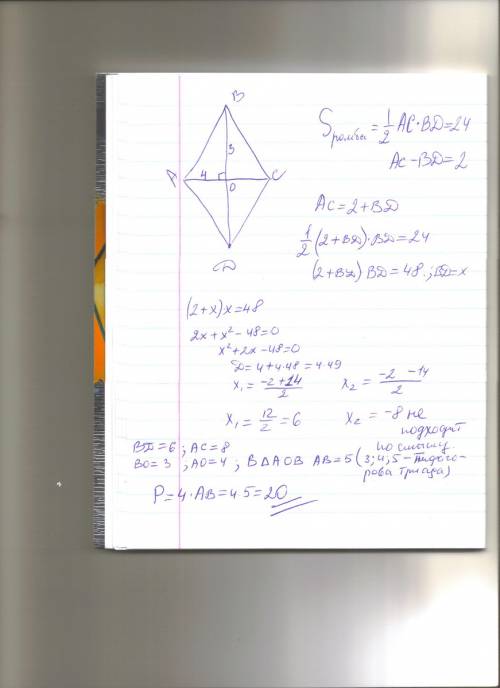 B
3
A 4 O C
D
S ромба = 1/2 AC·BD=24
AC-BD=2
AC=2+BD
1/2 (2+BD)·BD=24
(2+BD) BD=48.; BD=x
(2+x)x=48
2x+x²-48=0
x²+2x-48=0
D=4+4·48=4·49
x₁=(-2+14)/2 x₂=(-2-14)/2
x₁=12/2=6 x₂=-8 не
подходит
по смыслу.
BD=6; AC=8
BO=3, AO=4, В ΔAOB AB=5 (3;4;5-Пифаго-
рова тройка)
P=4·AB=4·5=20